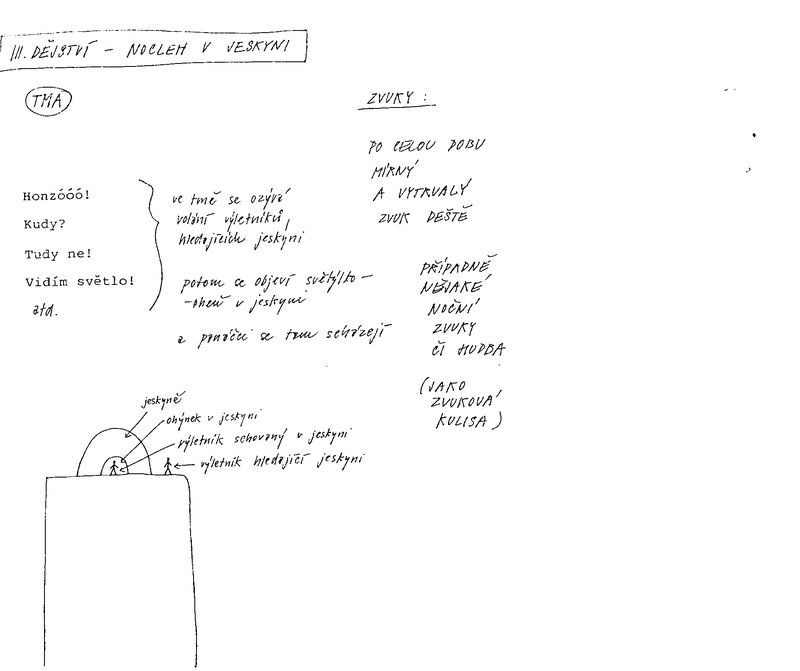 III. DĚJSTVÍ - NOCLEH V JESKYNI
TMA
Honzóóó!
Kudy?
Tudy ne!
Vidím světlo!
atd.
ve tmě se ozývá
volání výletníků,
hledajících jeskyni
potom se objeví světýlko -
- oheň v jeskyni
a panáčci se tam scházejí
ZVUKY :
PO CELOU DOBU
MÍRNÝ
A VYTRVALÝ
ZVUK DEŠTĚ
PŘÍPADNĚ
NĚJAKÉ
NOČNÍ
ZVUKY
ČI HUDBA
(JAKO
ZVUKOVÁ
KULISA)
jeskyně
ohýnek v jeskyni
výletník schovaný v jeskyni
výletník hledající jeskyni